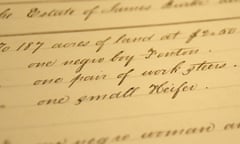 the Estate of James Burke and
To 187 acres of land at $2.50
" one negro boy Fenton.
" one pair of work steers.
" one small Heifer.
one negro woman an